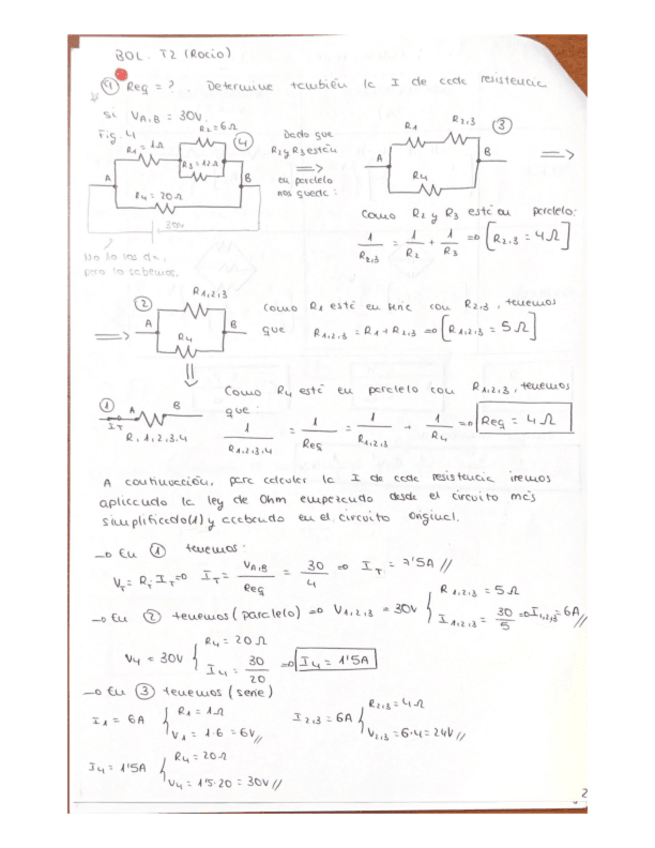 BOL. T2 (Rocio)
④ Req = ? . Determine también la I de cada resistencia
si VA,B = 30V.
Fig. 4
R1 = 1Ω
R2 = 6Ω
R3 = 12Ω
④
A
B
R4 = 20Ω
30V
No lo las da,
pero lo sabemos.
Dado que
R2 y R3 están
=>
en paralelo
nos queda:
R1
R2,3
③
A
B
R4
=>
Como R2 y R3 está en paralelo:
1/R2,3 = 1/R2 + 1/R3 => [R2,3 = 4Ω]
②
R1,2,3
=>
A
B
R4
Como R1 está en serie con R2,3, tenemos
que R1,2,3 = R1 + R2,3 => [R1,2,3 = 5Ω]
Como R4 está en paralelo con R1,2,3, tenemos
que:
①
A
B
IT
R1,2,3,4
1/R1,2,3,4 = 1/Req = 1/R1,2,3 + 1/R4 => Req = 4Ω
A continuación, para calcular la I de cada resistencia iremos
aplicando la ley de Ohm empezando desde el circuito más
simplificado(1) y acabando en el circuito original.
→ En ① tenemos:
VT = RT·IT => IT = VA,B/Req = 30/4 => IT = 7'5A //
→ En ② tenemos (paralelo) => V1,2,3 = 30V { R1,2,3 = 5Ω
I1,2,3 = 30/5 => I1,2,3 = 6A //
V4 = 30V { R4 = 20Ω
I4 = 30/20 => I4 = 1'5A
→ En ③ tenemos (serie)
I1 = 6A { R1 = 1Ω
V1 = 1·6 = 6V //
I2,3 = 6A { R2,3 = 4Ω
V2,3 = 6·4 = 24V //
I4 = 1'5A { R4 = 20Ω
V4 = 1'5·20 = 30V //
2